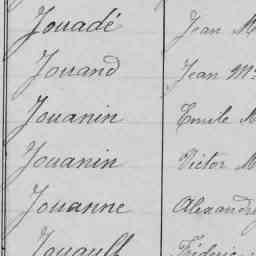 Jouadé Jean M
Jouand Jean M
Jouanin Emile M
Jouanin Victor M
Jouanne Alexandre
Jouault Fréderic